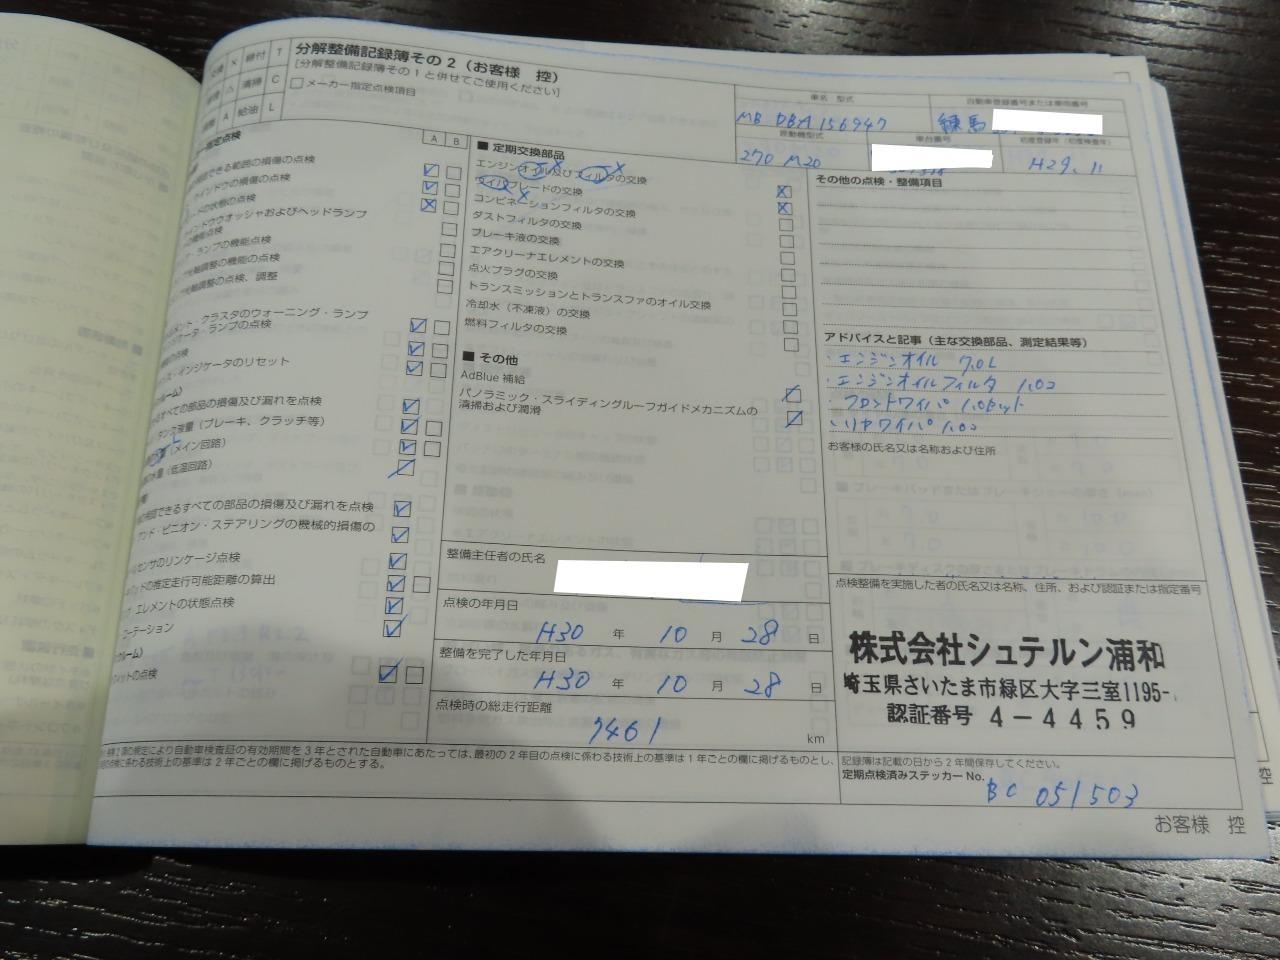 分解整備記録簿その2(お客様 控)
[分解整備記録簿その1と併せてご使用ください]
× 締付 T
△ 清掃 C
A 給油 L
□メーカー指定点検項目
指定点検
A B
できる範囲の損傷の点検
ウインドウの損傷の点検
ードの状態の点検
インドウウオッシャおよびヘッドランプ
の機能点検
ランプの機能点検
光軸調整の機能の点検
光軸調整の点検、調整
メント・クラスタのウォーニング・ランプ
ジケータ・ランプの点検
の点検
ンス・インジケータのリセット
すべての部品の損傷及び漏れを点検
タンク液量(ブレーキ、クラッチ等)
(メイン回路)
水量(低温回路)
視認できるすべての部品の損傷及び漏れを点検
アンド・ピニオン・ステアリングの機械的損傷の
センサのリンケージ点検
パッドの推定走行可能距離の算出
エレメントの状態点検
ーテーション
ットの点検
■ 定期交換部品
エンジンオイル及びフィルタの交換
ワイパブレードの交換
コンビネーションフィルタの交換
ダストフィルタの交換
ブレーキ液の交換
エアクリーナエレメントの交換
点火プラグの交換
トランスミッションとトランスファのオイル交換
冷却水(不凍液)の交換
燃料フィルタの交換
■ その他
AdBlue 補給
パノラミック・スライディングルーフガイドメカニズムの
清掃および潤滑
整備主任者の氏名
点検の年月日
H30 年 10 月 28 日
整備を完了した年月日
H30 年 10 月 28 日
点検時の総走行距離
7461 km
車名 型式
MB DBA 156947
自動車登録番号または車両番号
練馬
原動機型式
270 M20
車台番号
初度登録年(初度検査年)
H29.11
その他の点検・整備項目
アドバイスと記事(主な交換部品、測定結果等)
・エンジンオイル 7.0L
・エンジンオイルフィルタ 1.0コ
・フロントワイパ 1.0セット
・リヤワイパ 1.0コ
お客様の氏名又は名称および住所
点検整備を実施した者の氏名又は名称、住所、および認証または指定番号
株式会社シュテルン浦和
埼玉県さいたま市緑区大字三室1195-
認証番号 4-4459
規定により自動車検査証の有効期間を3年とされた自動車にあたっては、最初の2年目の点検に係わる技術上の基準は1年ごとの欄に掲げるものとし、
の点検に係わる技術上の基準は2年ごとの欄に掲げるものとする。
記録簿は記載の日から2年間保存してください。
定期点検済みステッカーNo.
BC 051503
お客様 控